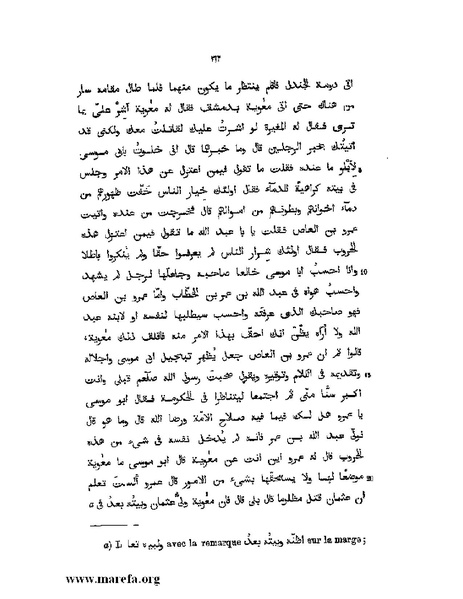 ٢١٣
اتى دومة الجندل فاقام ينتظر ما يكون منهما فلما طال مقامه سار
من هناك حتى اتى معوية بدمشق فقال له معوية أشر علىّ بما
ترى فقال له المغيرة لو اشرت عليك لقاتلت معك ولكنى قد
اتيتك بخبر الرجلين قال وما خبرهما قال انى خلوت بابى موسى
لأبلو ما عنده فقلت ما تقول فيمن اعتزل عن هذا الامر وجلس
فى بيته كراهية للدماء فقال اولئك خيار الناس خفّت ظهورهم من
دماء اخوانهم وبطونهم من اموالهم قال فخرجت من عنده واتيت
عمرو بن العاص فقلت يا با عبد الله ما تقول فيمن اعتزل هذه
الحروب فقال اولئك شرار الناس لم يعرفوا حقّا ولم ينكروا باطلا
10 وانا احسب ابا موسى خالعا صاحبه وجاعلها لرجل لم يشهد
واحسب هواه فى عبد الله بن عمر بن الخطّاب وامّا عمرو بن العاص
فهو صاحبك الذى عرفته واحسب سيطلبها لنفسه او لابنه عبد
الله ولا أراه يظنّ انك احقّ بهذا الامر منه فاقلق ذلك معوية،
قالوا ثم ان عمرو بن العاص جعل يُظهر تبجيل ابى موسى واجلاله
وتقديمه فى الكلام وتوقيره ويقول صحبت رسول الله صلّعم قبلى وانت
اكبر سنّا منّى ثم اجتمعا ليتناظرا فى الحكومة فقال ابو موسى
يا عمرو هل لك فيما فيه صلاح الامّة ورضا الله قال وما هو قال
نولّى عبد الله بن عمر فانه لم يُدخل نفسه فى شىء من هذه
الحروب قال له عمرو اين انت عن معوية قال ابو موسى ما معوية
موضعًا لها ولا يستحقّها بشىء من الامور قال عمرو ألست تعلم
ان عثمان قتل مظلوما قال بلى قال فان معوية ولىّ عثمان وبيته بعدُ فى
a) L وليته تعا avec la remarque اظنّه وبيته بعدُ sur la marge;
www.marefa.org